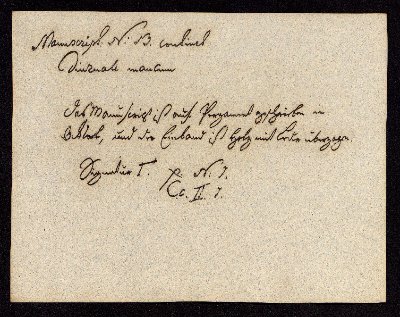 Manuscript N: B. continet
Diurnale
Das Manuscript ist auf Pergament geschrieben in
Oktav, und der Einband ist Holz mit Leder überzogen.
Signatur T. p. N. 7.
Cc. II. 7.